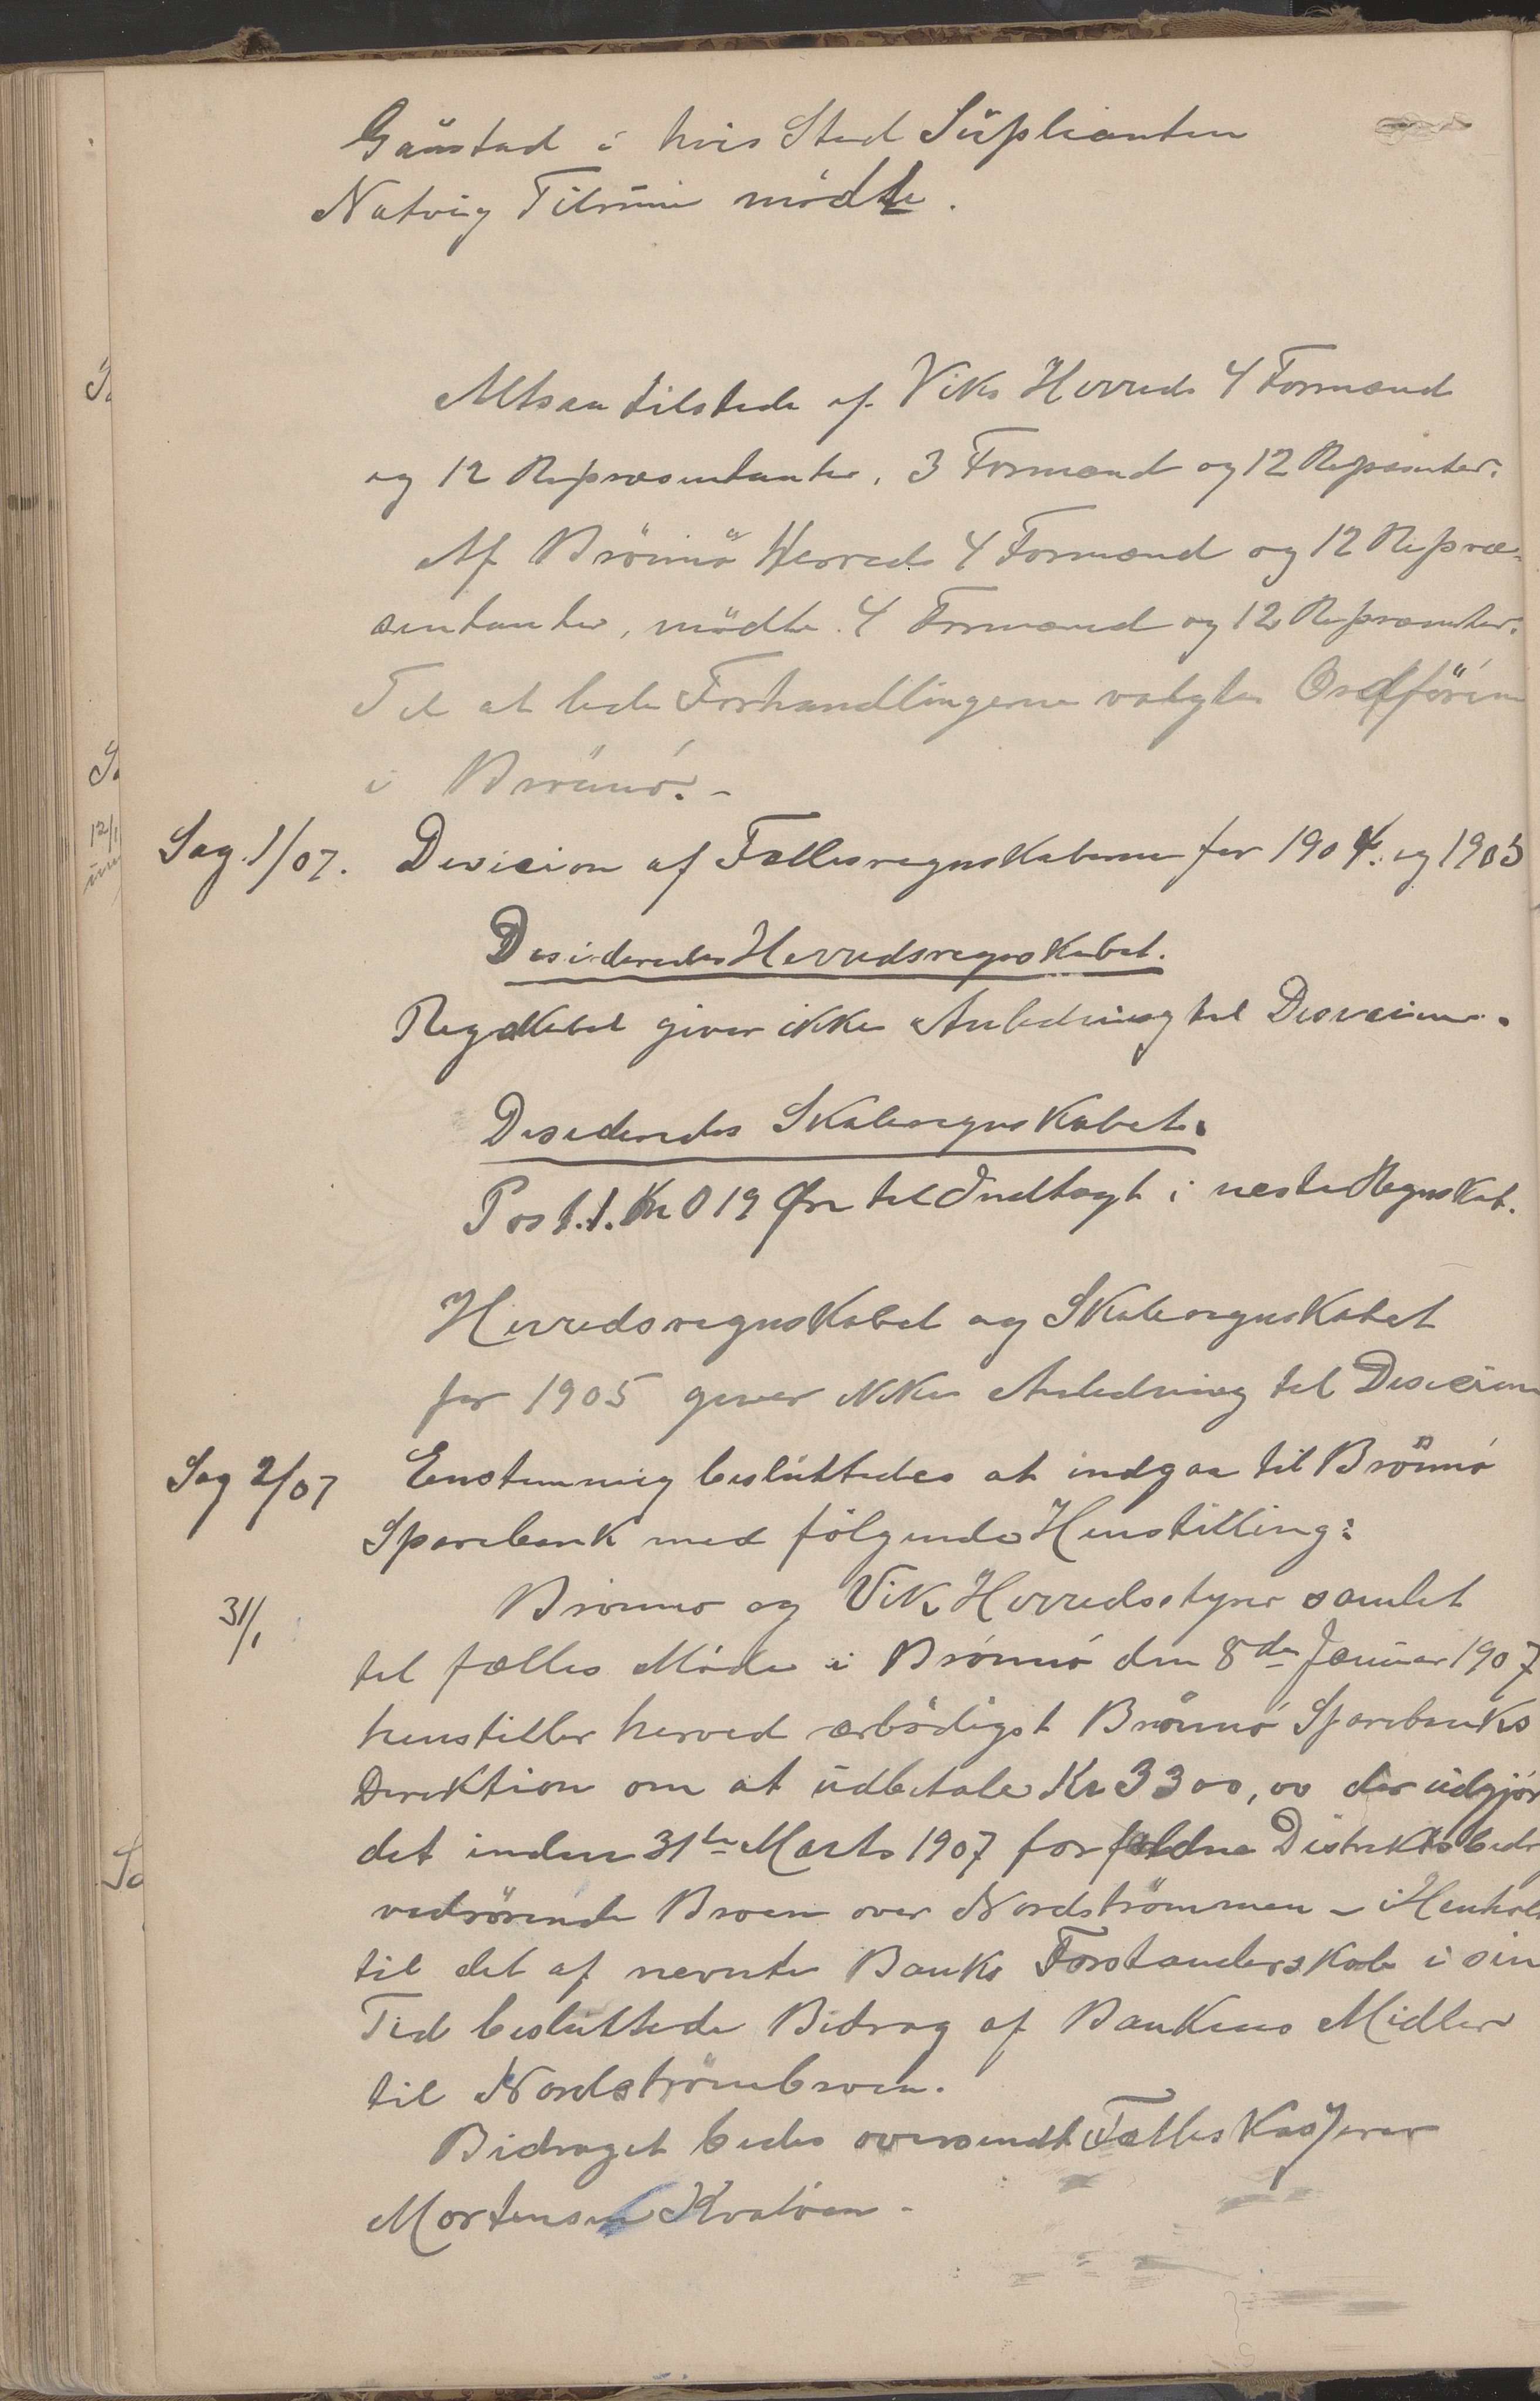 Gaustad i hvis Sted Suplianten
Natvig Tilrem mödte.
Altsaa tilstede af Viks Herreds 4 Formænd
og 12 Repræsentanter, 3 Formænd og 12 Repsenter.
Af Brönnö Herreds 4 Formænd og 12 Repræ-
sentanter, mödte 4 Formænd og 12 Repræsenter.
Til at lede Forhandlingerne valgtes Ordföreren
i Brönnö. -
Sag 1/07. Decision af Fællesregnskaberne for 1904. og 1905
Desideredes Herredsregnskabet.
Regnskabet giver ikke Anledning til Desision.
Desideredes Skoleregnskabet.
Post. 1. Kr 0 19 Øre til Indtægt i neste Regnskab.
Herredsregnskabet og Skoleregnskabet
for 1905 giver ikke Anledning til Desision
Sag 2/07 Enstemmig besluttedes at indgaa til Brönnö
Sparebank med fölgende Henstilling:
31/1 Brönnö og Vik Herredsstyrer samlet
til fælles Möde i Brönnö den 8de Januar 1907
henstiller herved ærbödigst Brönnö Sparebanks
Direktion om at udbetale Kr 3300,00 der udgjör
det inden 31te Marts 1907 forfaldne Distriktsbidr
vedrörende Broen over Nordströmmen - i Henhold
til det af nevnte Banks Forstanderskab i sin
Tid besluttede Bidrag af Bankens Midler
til Nordströmbroen.
Bidraget bedes oversendt Fælleskasserer
Mortensen Kvalöen -